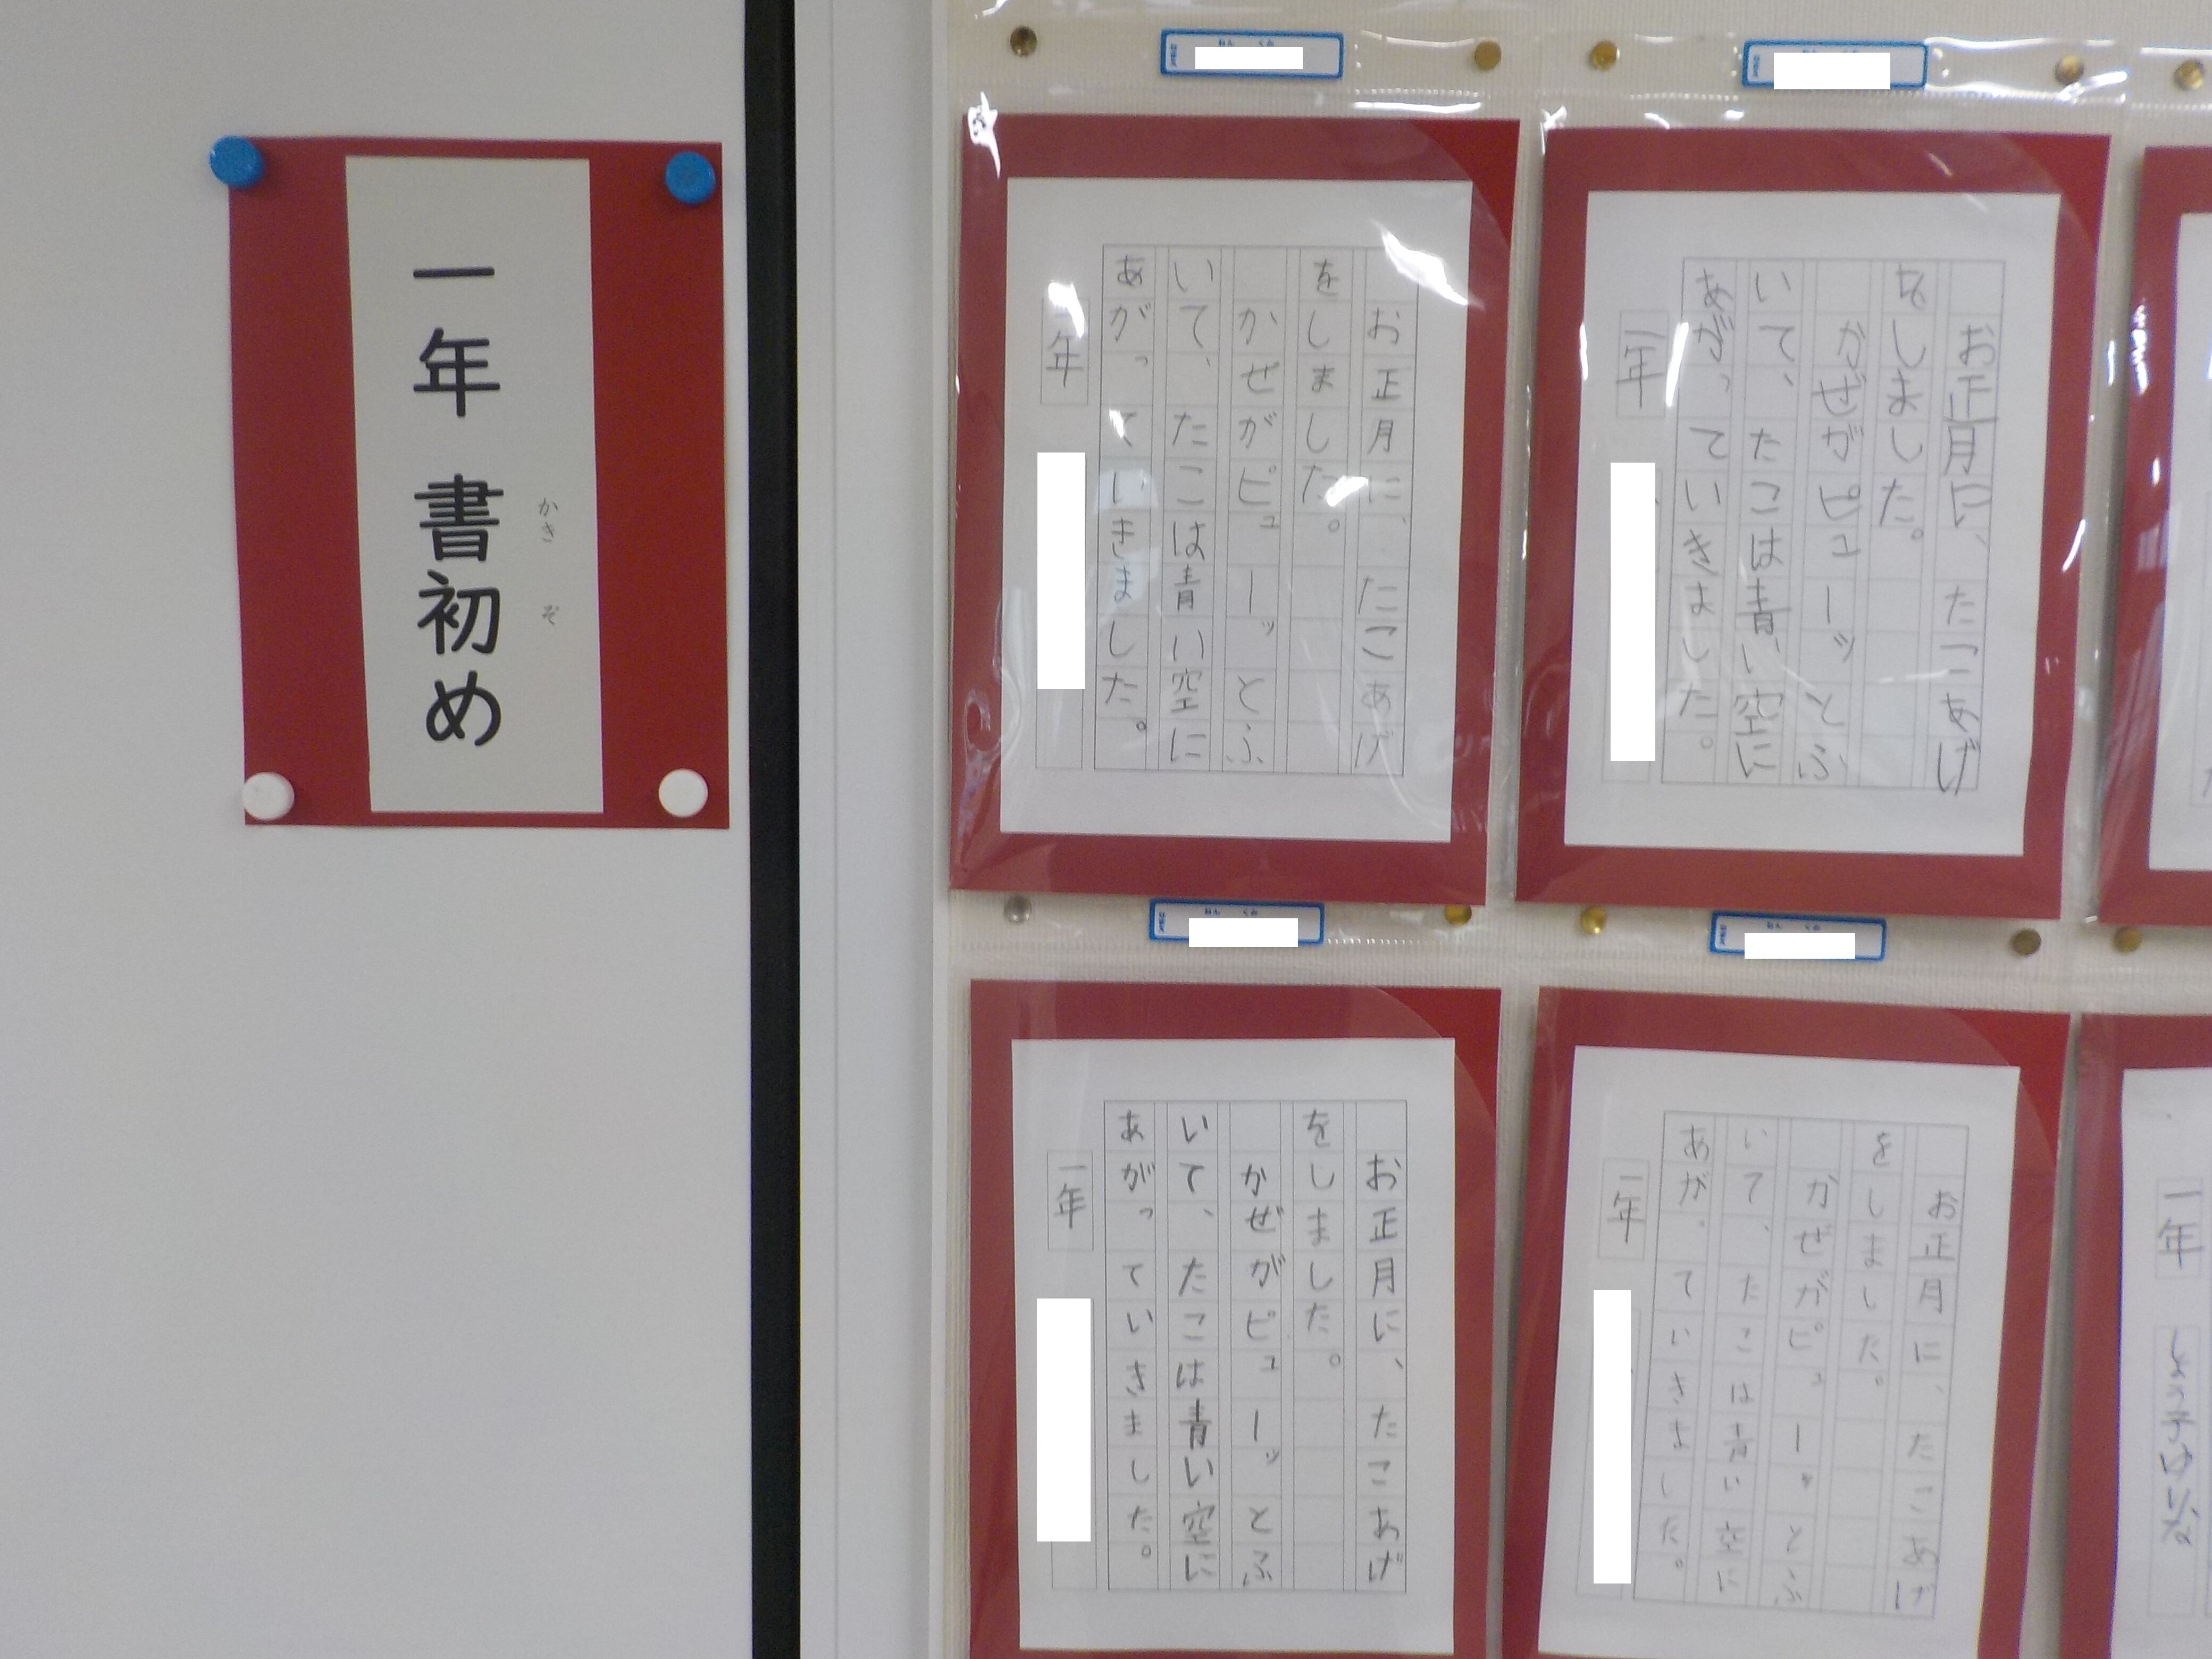 一年 書初め
かき ぞ
お正月に、たこあげ
をしました。
かぜがピューッとふ
いて、たこは青い空に
あがっていきました。
年
お正月に、たこあげ
をしました。
かぜがピューッとふ
いて、たこは青い空に
あがっていきました。
一年
お正月に、たこあげ
をしました。
かぜがピューッとふ
いて、たこは青い空に
あがっていきました。
一年
お正月に、たこあげ
をしました。
かぜがピューッとふ
いて、たこは青い空に
あがっていきました。
一年
一年